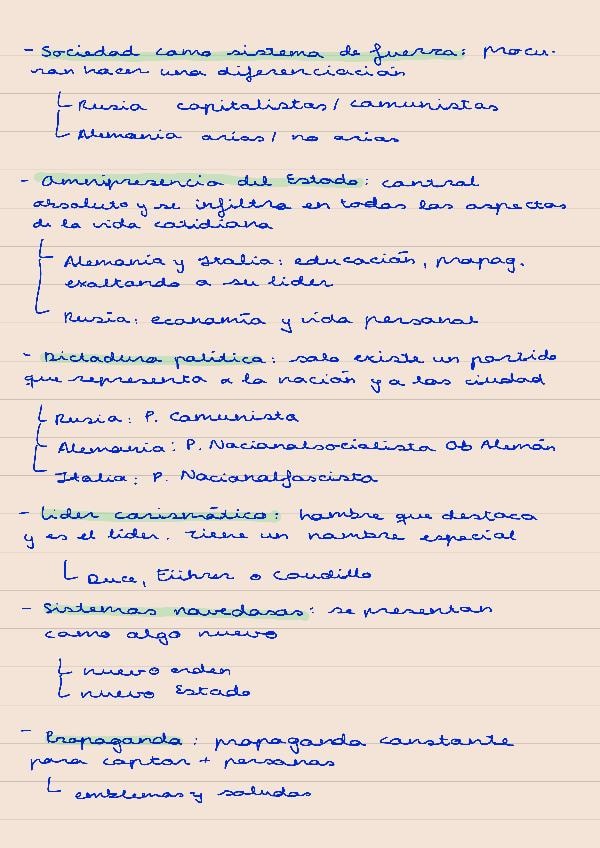 - Sociedad como sistema de fuerza: procu-
ran hacer una diferenciación
Rusia capitalistas / comunistas
Alemania arias / no arias
- Omnipresencia del Estado: control
absoluto y se infiltra en todos los aspectos
de la vida cotidiana
Alemania y Italia: educación, propag.
exaltando a su lider
Rusia: economía y vida personal
- Dictadura política: solo existe un partido
que representa a la nación y a los ciudad
Rusia: P. Comunista
Alemania: P. Nacionalsocialista Ob Alemán
Italia: P. Nacionalfascista
- Lider carismático: hombre que destaca
y es el líder. Tiene un nombre especial
Duce, Führer o Caudillo
- Sistemas novedosos: se presentan
como algo nuevo
nuevo orden
nuevo Estado
- Propaganda: propaganda constante
para captar + personas
emblemas y saludos